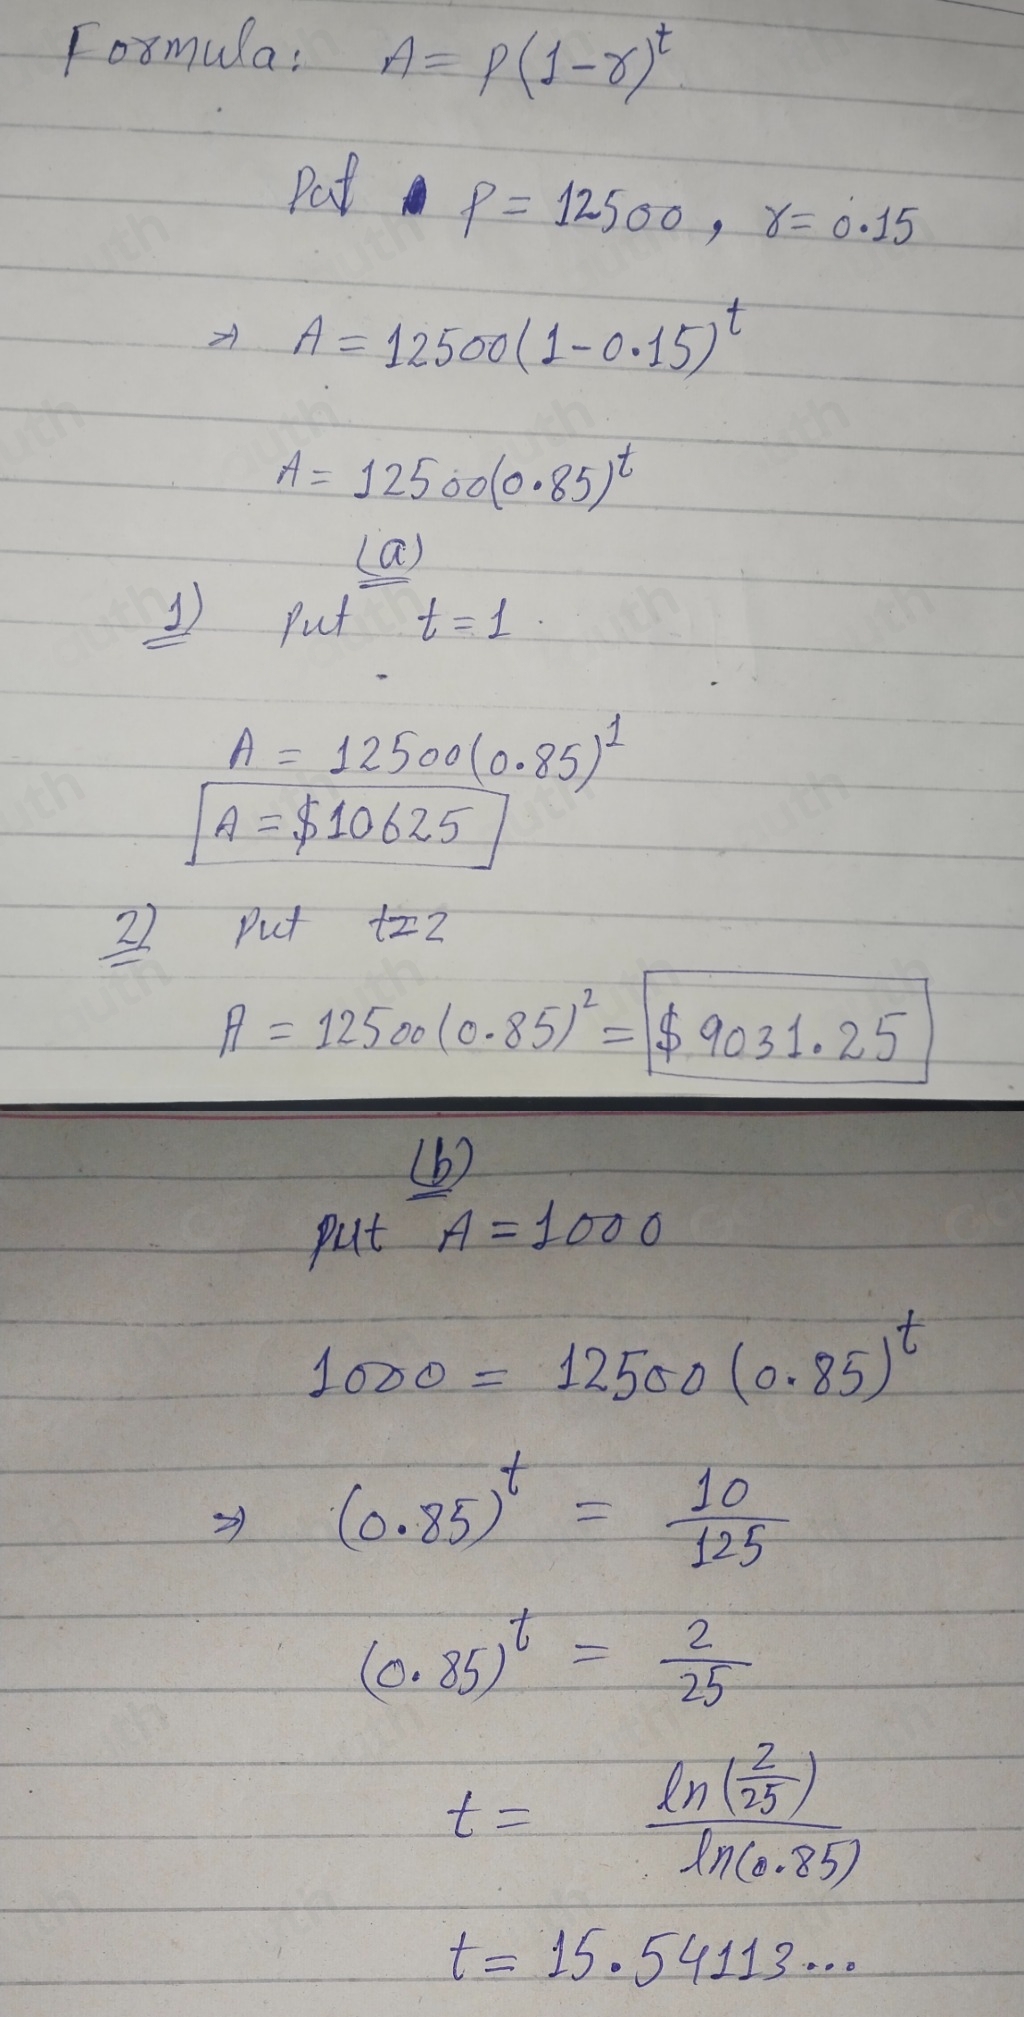 Formula: A = P(1-r)^t
Put P = 12500, r = 0.15
⇒ A = 12500(1-0.15)^t
A = 12500(0.85)^t
(a)
1) Put t = 1
A = 12500(0.85)^1
A = $10625
2) Put t = 2
A = 12500(0.85)^2 = $9031.25
(b)
Put A = 1000
1000 = 12500(0.85)^t
⇒ (0.85)^t = 10/125
(0.85)^t = 2/25
t = ln(2/25)/ln(0.85)
t = 15.54113...